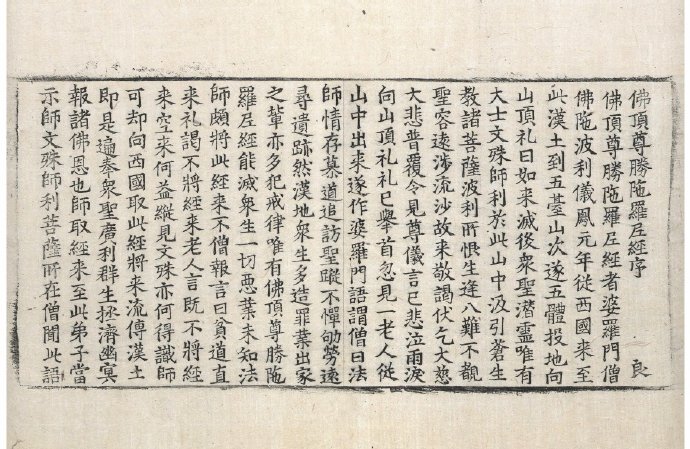 佛頂尊勝陁羅尼經序 良
佛頂尊勝陁羅尼經者婆羅門僧
佛陁波利儀鳳元年從西國來至
此漢土到五臺山次遂五體投地向
山頂礼曰如來滅後衆聖潛靈唯有
大士文殊師利於此山中汲引蒼生
教諸菩薩波利所恨生逢八難不覩
聖容遠涉流沙故來敬謁伏乞大慈
大悲普覆令見尊儀言已悲泣雨淚
向山頂礼礼已舉首忽見一老人從
山中出來遂作婆羅門語謂僧曰法
師情存慕道追訪聖蹤不憚劬勞遠
尋遺跡然漢地衆生多造罪業出家
之輩亦多犯戒律唯有佛頂尊勝陁
羅尼經能滅衆生一切惡業未知法
師頗將此經來不僧報言曰貧道直
來礼謁不將經來老人言既不將經
來空來何益縱見文殊亦何得識師
可却向西國取此經將來流傳漢土
即是遍奉衆聖廣利群生拯濟幽冥
報諸佛恩也師取經來至此弟子當
示師文殊師利菩薩所在僧聞此語